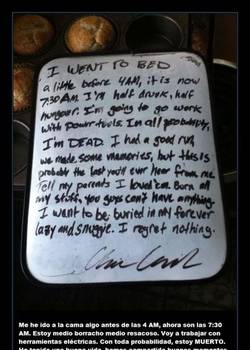 I WENT TO BED
a little before 4AM, it is now
7:30AM. I'm half drunk, half
hungover. I'm going to go work
with power tools. In all probability,
I'm DEAD. I had a good run,
we made some memories, but this is
probably the last you'll ever hear from me.
Tell my parents I loved em. Burn all
my stuff, you guys can't have anything.
I want to be buried in my forever
lazy and snuggie. I regret nothing.
Me he ido a la cama algo antes de las 4 AM, ahora son las 7:30
AM. Estoy medio borracho medio resacoso. Voy a trabajar con
herramientas eléctricas. Con toda probabilidad, estoy MUERTO.